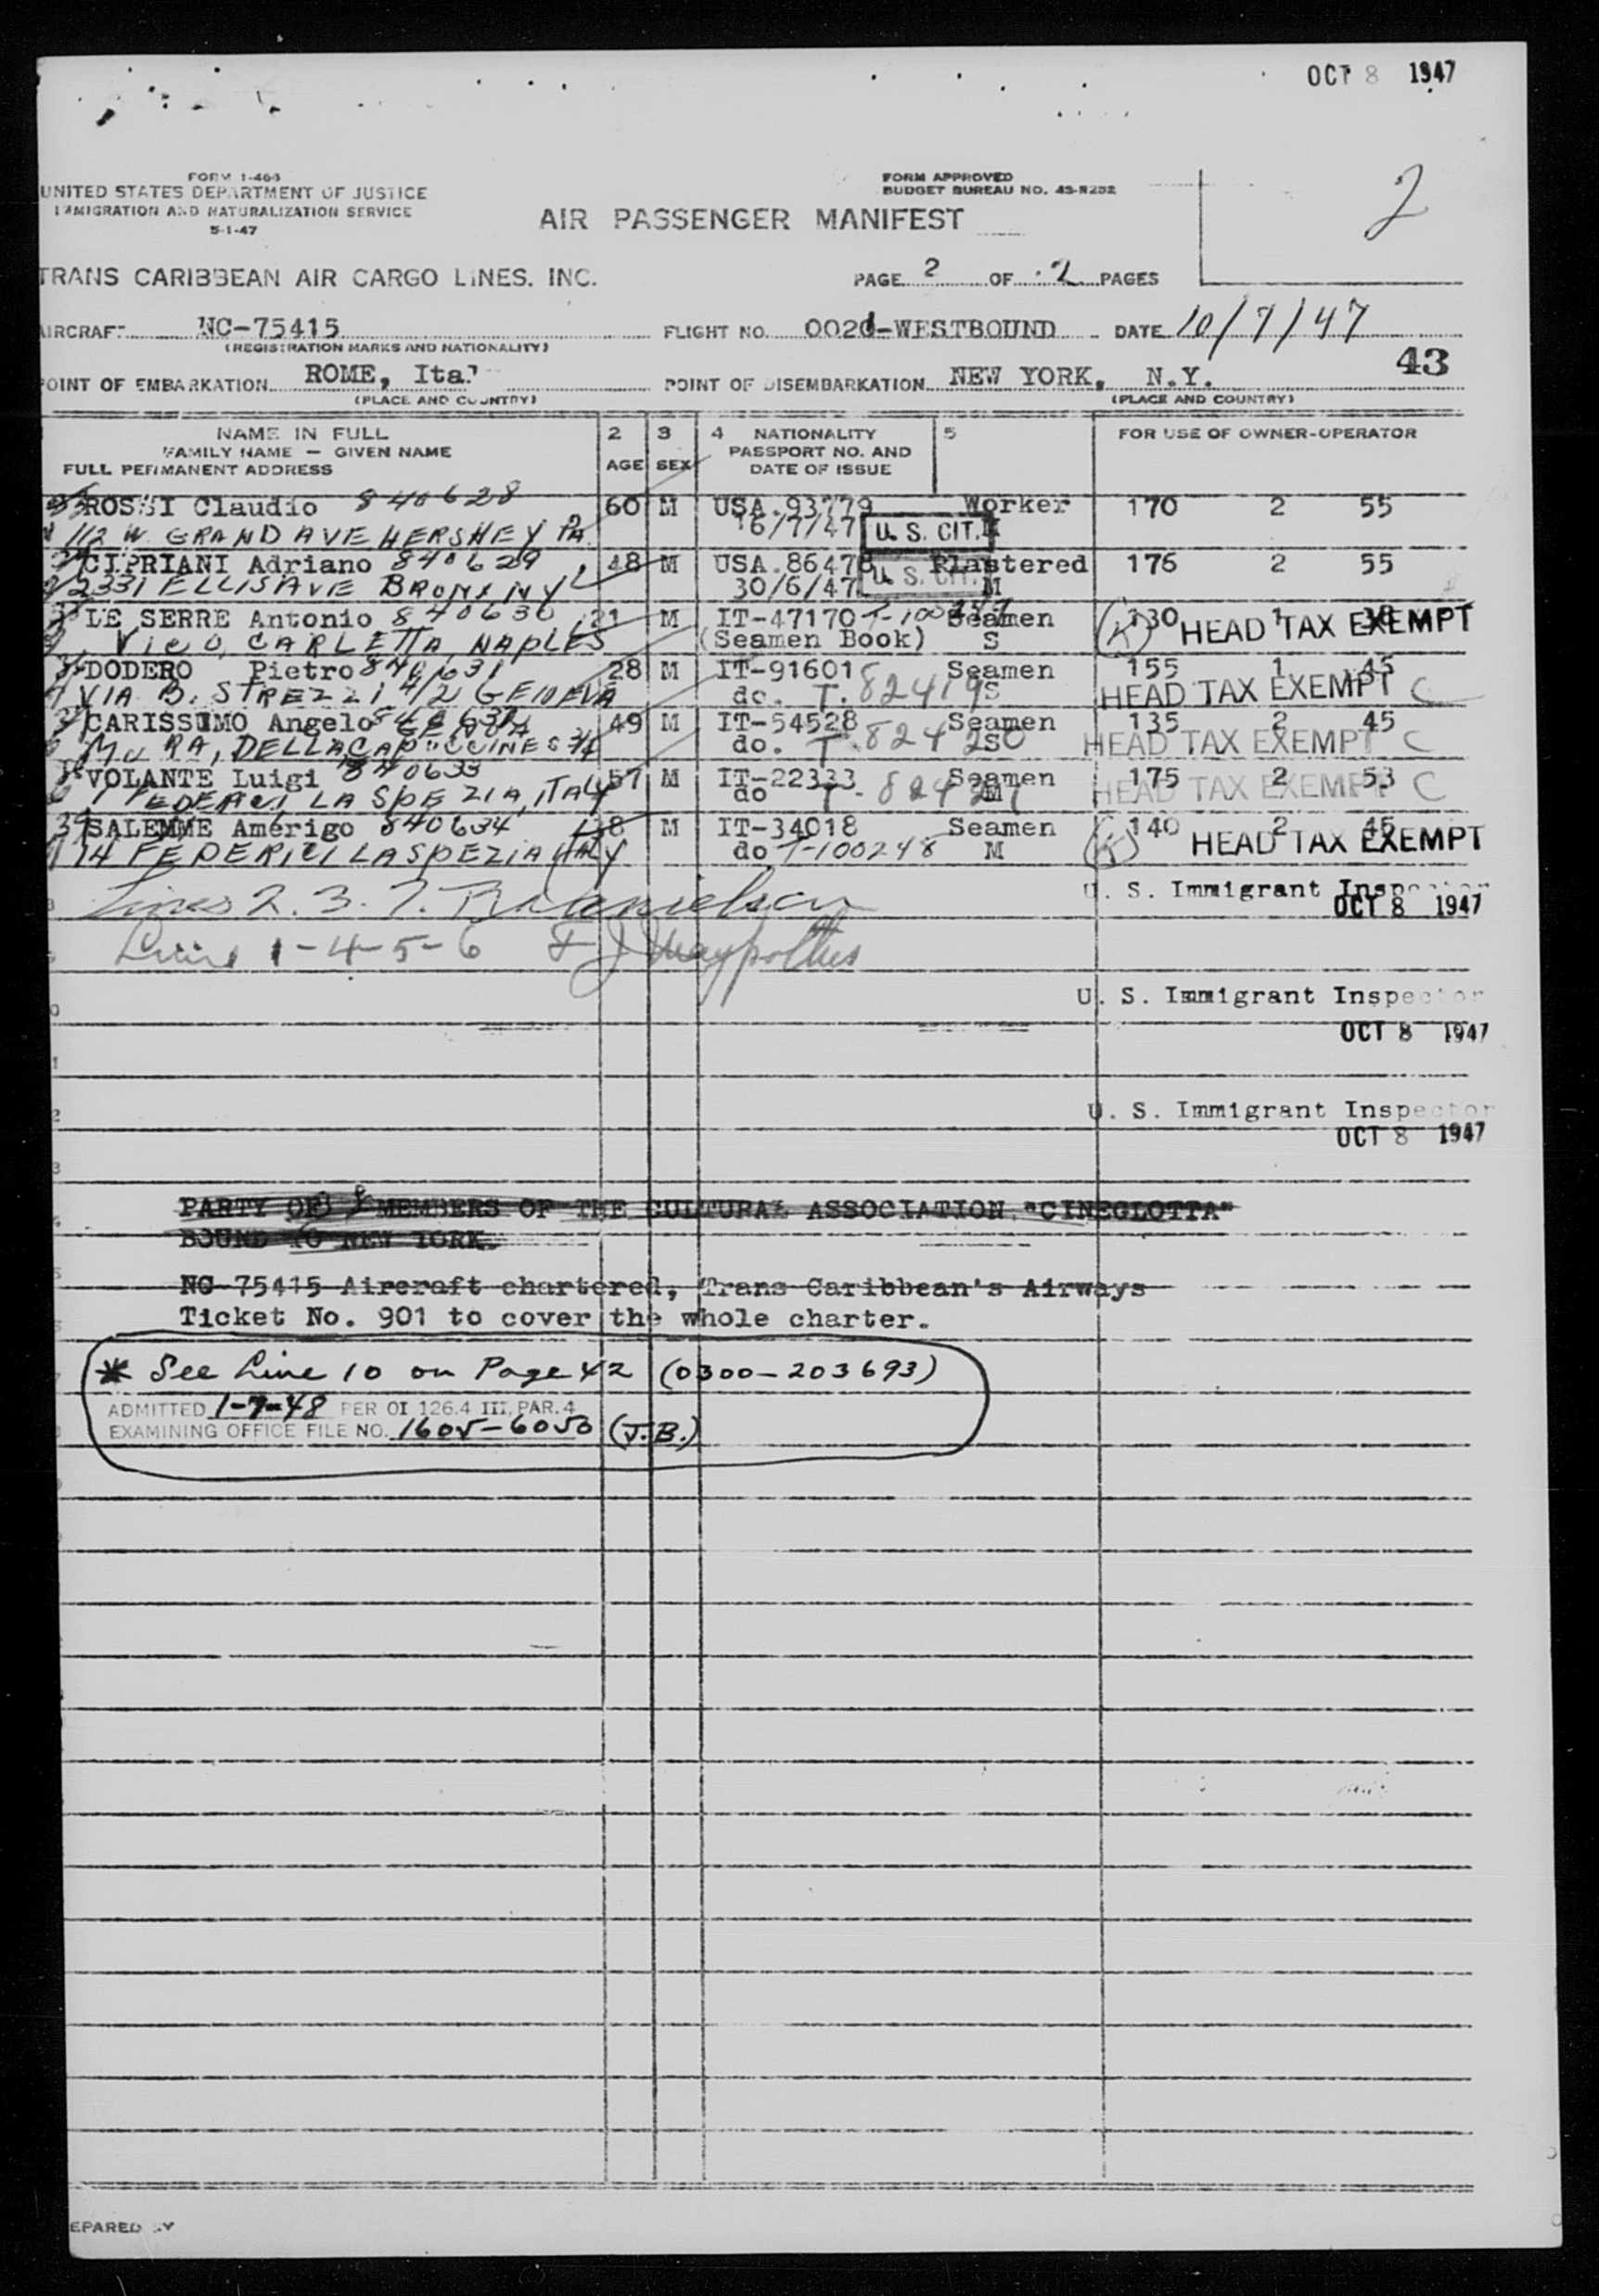 OCT 8 1947
FORM I-466
UNITED STATES DEPARTMENT OF JUSTICE
IMMIGRATION AND NATURALIZATION SERVICE
5-1-47
FORM APPROVED
BUDGET BUREAU NO. 43-R252
2
AIR PASSENGER MANIFEST
TRANS CARIBBEAN AIR CARGO LINES. INC.
PAGE 2 OF 2 PAGES
AIRCRAFT NC-75415 FLIGHT NO. -WESTBOUND DATE 10/7/47
(REGISTRATION MARKS AND NATIONALITY)
43
POINT OF EMBARKATION ROME, Ital POINT OF DISEMBARKATION NEW YORK, N.Y.
(PLACE AND COUNTRY) (PLACE AND COUNTRY)
NAME IN FULL
FAMILY NAME — GIVEN NAME
FULL PERMANENT ADDRESS
2 AGE
3 SEX
4 NATIONALITY
PASSPORT NO. AND
DATE OF ISSUE
5
FOR USE OF OWNER-OPERATOR
ROSSI Claudio 840628 60 M USA.93779 Worker 170 2 55
112 W. GRAND AVE HERSHEY PA. 16/7/47 U. S. CIT.
CIPRIANI Adriano 840629 48 M USA.86478 Plastered 176 2 55
2331 ELLIS AVE BRONX NY 30/6/47 U. S. CIT. M
LE SERRE Antonio 840630 21 M IT-47170 Seamen 130 1 HEAD TAX EXEMPT
VICO, CARLETTA, NAPLES (Seamen Book) S (K)
DODERO Pietro 840631 28 M IT-91601 Seamen 155 1 45
VIA B. STREZZI 4/2 GENOVA do. T. 82419 S HEAD TAX EXEMPT C
CARISSIMO Angelo GENOA 49 M IT-54528 Seamen 135 2 45
do. HEAD TAX EXEMPT C
VOLANTE Luigi 840633 57 M IT-22333 Seamen 175 2 53
LA SPEZIA, ITALY do HEAD TAX EXEMPT C
SALEMME Amerigo 840634 M IT-34018 Seamen 140 2 45
14 FEDERICI LA SPEZIA ITALY do T-100248 M (K) HEAD TAX EXEMPT
Lines 2. 3. 7.
U. S. Immigrant Inspector
OCT 8 1947
Lines 1-4-5-6
U. S. Immigrant Inspector
OCT 8 1947
U. S. Immigrant Inspector
OCT 8 1947
PARTY OF MEMBERS OF THE CULTURAL ASSOCIATION "CINEGLOTTA"
BOUND TO NEW YORK.
NC-75415 Aircraft chartered, Trans Caribbean's Airways
Ticket No. 901 to cover the whole charter.
* See Line 10 on Page 42 (0300-203693)
ADMITTED 1-7-48 PER OI 126.4 III, PAR. 4
EXAMINING OFFICE FILE NO. 1605-6050 (J.B.)
EPARED BY